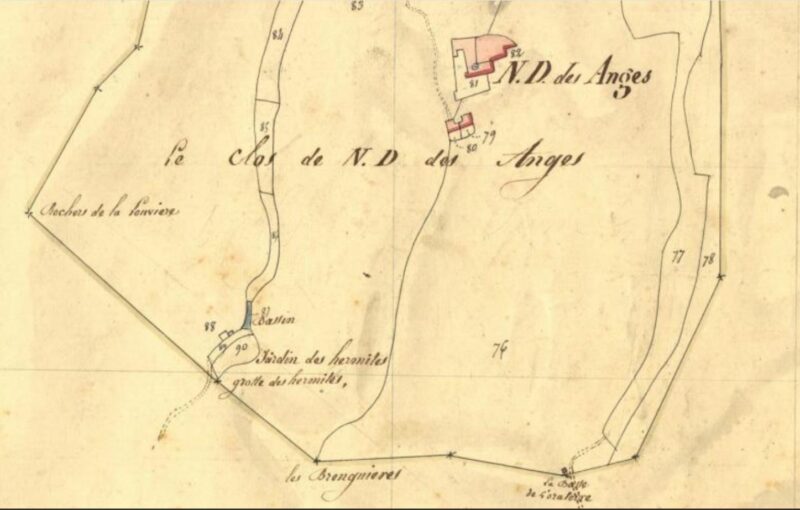 84
83
82
N. D. des Anges
81
85
79
80
Le Clos de N. D des Anges
Rochers de la Louviere
77
78
Bassin
88
89
90
Jardin des hermites
grotte des hermites,
76
les Brenguieres
la Basse
de l'oratoire